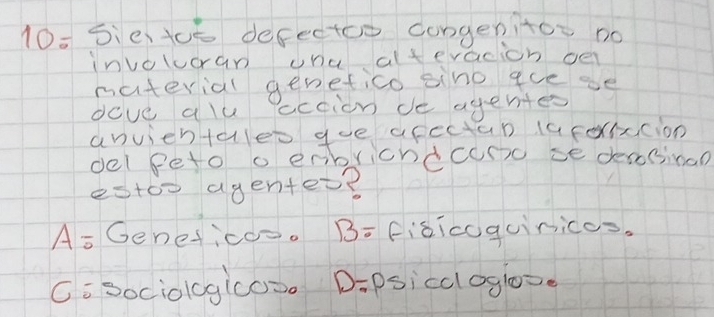 10= Siertos defectos congenitos no
involucran una alteracion del
material genetico sino que se
deve a la accion de agentes
anvientales que afectan la formacion
del feto o embrion ¿como se denominan
estos agentes?
A= Geneticos. B= fisicoquimicos.
C= sociologicos. D= psicologios.